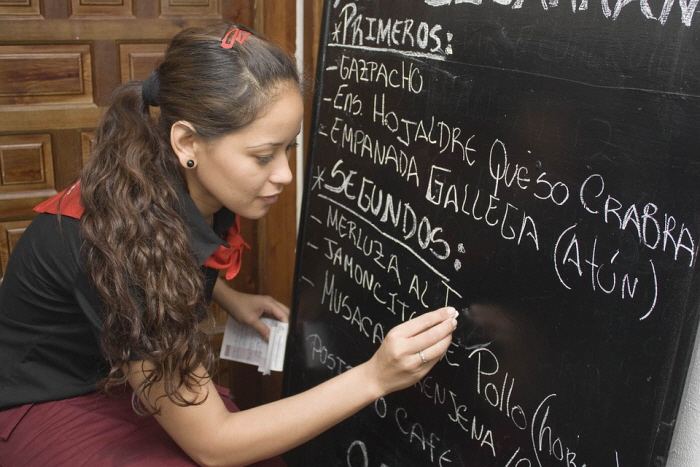 *PRIMEROS:
-GAZPACHO
-ENS. HOJALDRE QUESO CRABRA
-EMPANADA GALLEGA (ATÚN)
*SEGUNDOS:
- MERLUZA AL
- JAMONCITO E POLLO
- MUSACA ENJENA
POST O CAFE